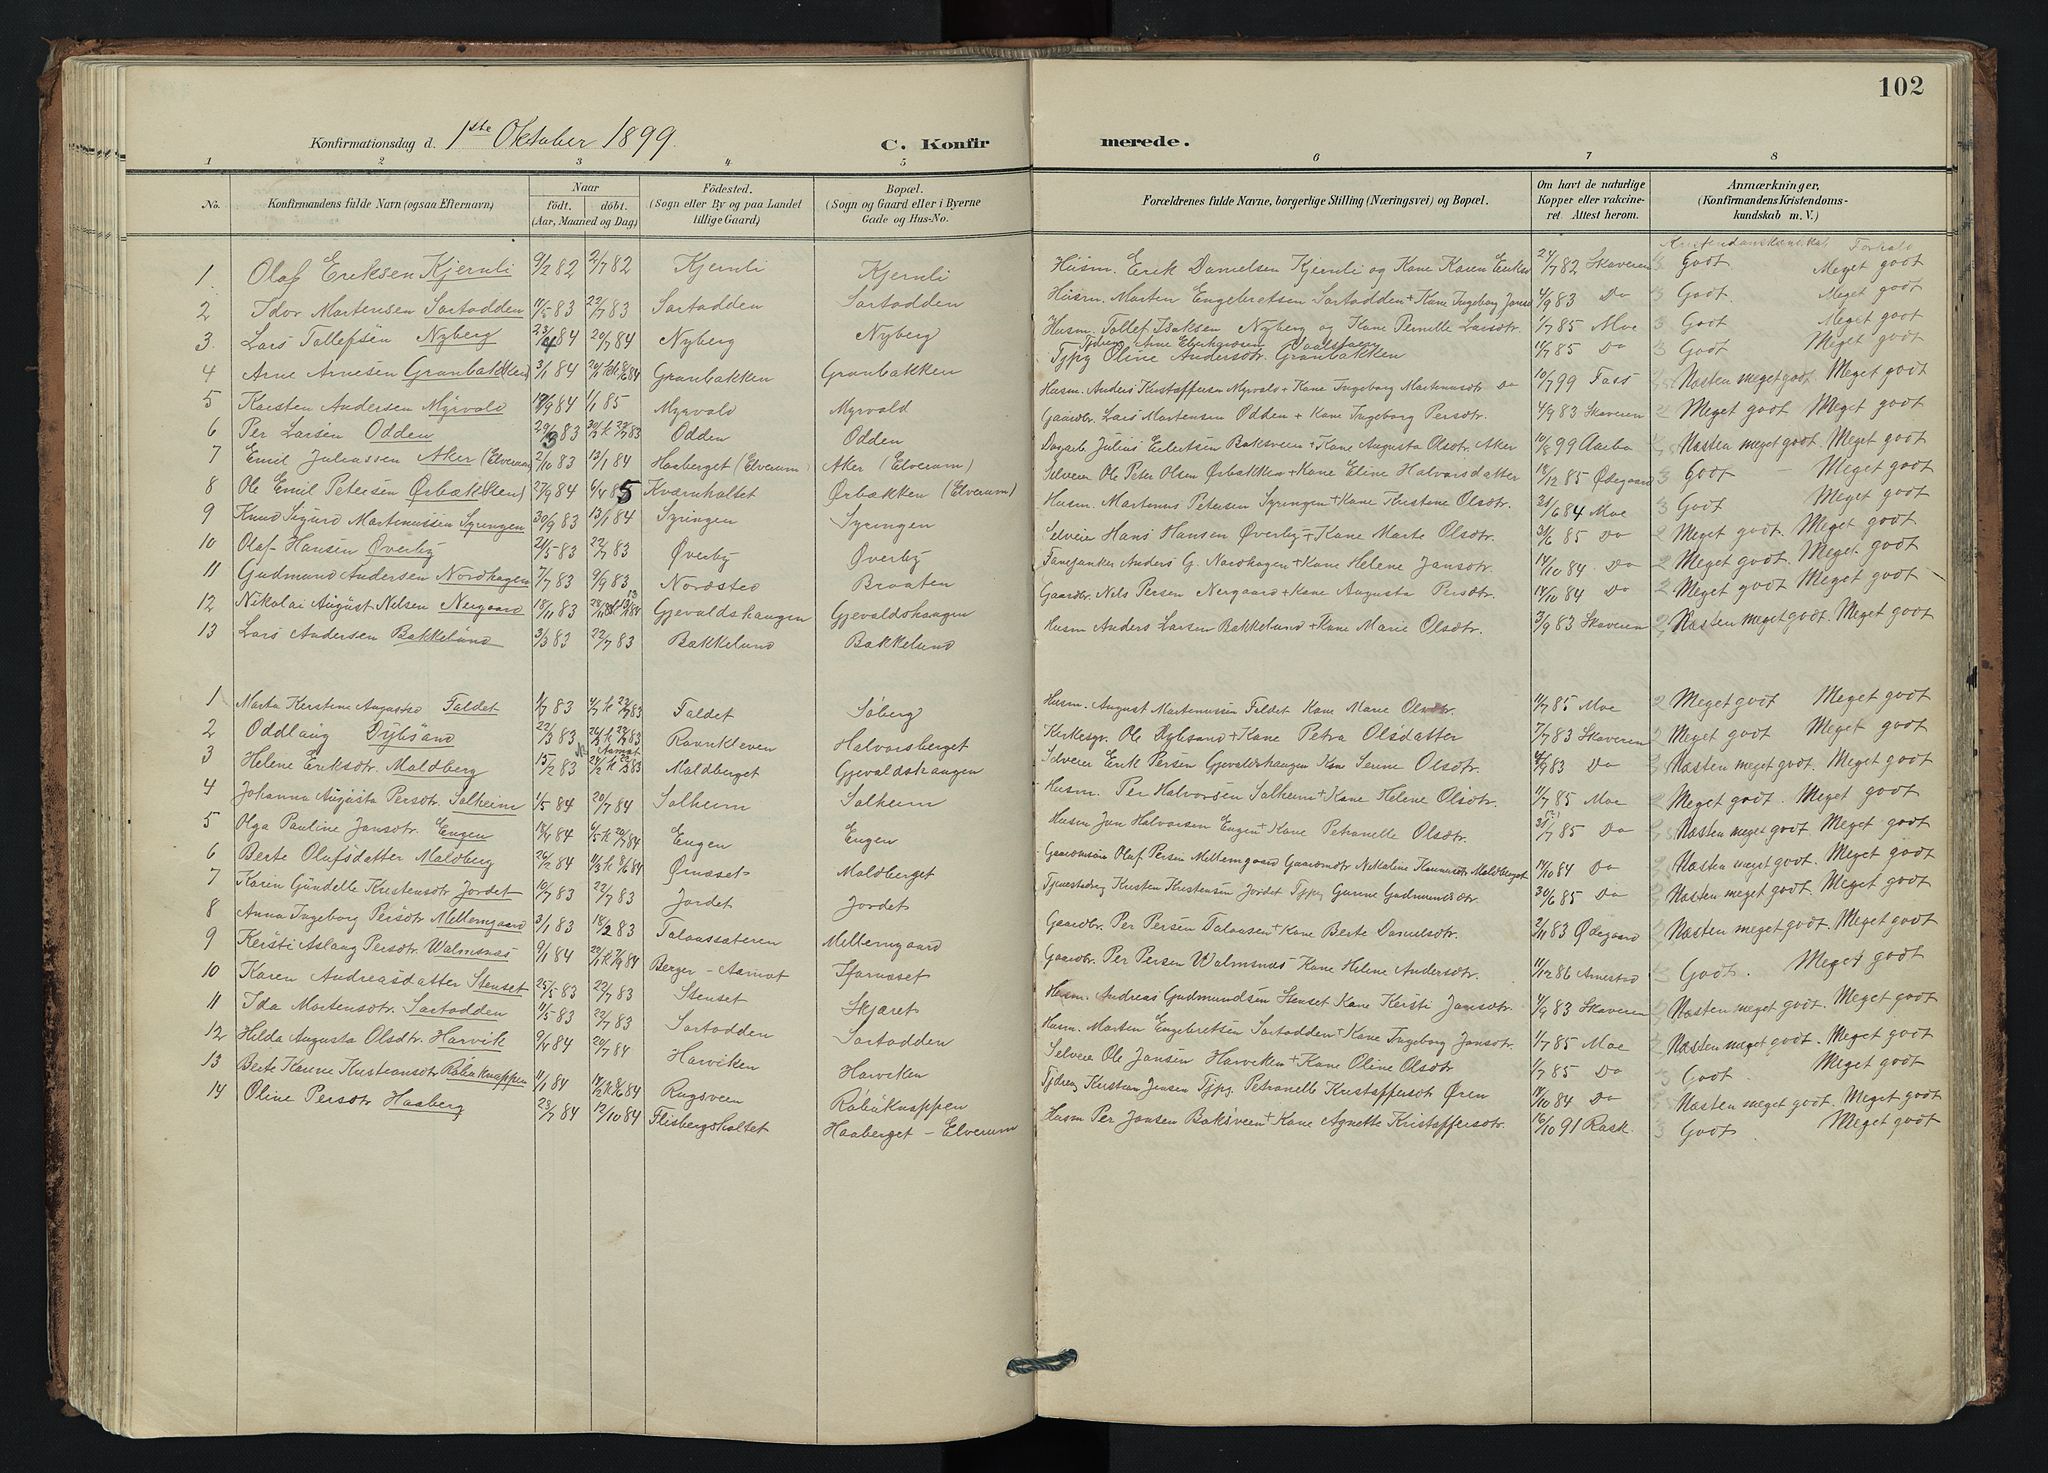 102
Konfirmationsdag d. 1ste Oktober 1899.
C. Konfirmerede.
1 2 3 4 5 6 7 8
No.
Konfirmandens fulde Navn (ogsaa Efternavn)
Naar
Födt. döbt.
(Aar, Maaned og Dag)
Födested.
(Sogn eller By og paa Landet
tillige Gaard)
Bopæl.
(Sogn og Gaard eller i Byerne
Gade og Hus-No.
Forældrenes fulde Navne, borgerlige Stilling (Næringsvei) og Bopæl.
Om havt de naturlige
Kopper eller vakcine-
ret. Attest herom.
Anmærkninger,
(Konfirmandens Kristendoms-
kundskab m. V.)
1 Olaf Eriksen Kjernli 9/2 82 2/7 82 Kjernli Kjernli Husm. Erik Danielsen Kjernli og Kone Karen 24/7 82 Skaveren 3 Godt Meget godt
2 Idor Martensen Sortodden 11/5 83 22/7 83 Sortodden Sortodden Husm. Morten Engebretsen Sortodden + Kone Ingeborg 4/9 83 Do 3 Godt Meget godt
3. Lars Tollefsen Nyberg 23/4 84 20/7 84 Nyberg Nyberg Husm. Tollef Isaksen Nyberg og Kone Pernille Larsdtr. 1/7 85 Moe 3 Godt Meget godt
4 Arne Arnesen Granbakken 3/1 84 Granbakken Granbakken Tjpg Oline Andersdtr. Granbakken 11/7 85 Do 3 Godt Meget godt
5 Karsten Andersen Myrvold 17/9 84 1/1 85 Myrvold Myrvold Husm. Anders Kristoffersen Myrvold + Kone Ingeborg Martinusdtr Do 10/7 99 Foss Næsten meget godt Meget godt
6 Per Larsen Odden 29/3 83 Odden Odden Gaardbr. Lars Martensen Odden + Kone Ingeborg Persdtr. 4/9 83 Skaveren 2 Meget godt Meget godt
7 Emil Juliussen Aker (Elverum) 2/10 83 13/1 84 Haaberget (Elverum) Aker (Elverum) Dagarb. Julius Eilertsen Baksveen + Kone Augusta Olsdtr. Aker 10/8 99 Aarbo Næsten meget godt. Meget godt
8 Ole Emil Petersen Ørbæk(ken) 27/9 84 6/4 85 Kværnholtet Ørbækken (Elverum) Selveier Ole Peter Olsen Ørbækken + Kone Eline Halvorsdatter 18/12 85 Ødegaard 3 Godt Meget godt
9 Knud Sigurd Martinussen Syringen 30/9 83 13/1 84 Syringen Syringen Husm. Martinus Petersen Syringen + Kone Kristine Olsdtr. 21/6 84 Moe 3 Godt Meget godt
10 Olaf Hansen Øverby 21/5 83 22/7 83 Øverby Øverby Selveier Hans Hansen Øverby + Kone Marte Olsdtr. 3/6 85 Do 2 Meget godt. Meget godt
11 Gudmund Andersen Nordhagen 7/7 83 9/9 83 Nordsted Braaten Fanejunker Anders G. Nordhagen + Kone Helene Jansdtr. 14/10 84 Do 2 Meget godt. Meget godt
12 Nikolai August Nilsen Nergaard 18/11 83 Gjevaldshaugen Gjevaldshaugen Gaardbr. Nils Persen Nergaard + Kone Augusta Persdtr. 14/10 84 Do 2 Meget godt Meget godt
13 Lars Andersen Bakkelund 3/3 83 22/7 83 Bakkelund Bakkelund Husm Anders Larsen Bakkelund + Kone Marie Olsdtr. 3/9 83 Skaveren Næsten meget godt. Meget godt
1 Marta Kerstine Augustsd Faldet 1/7 83 Faldet Søberg Husm. August Martinussen Faldet Kone Marie Olsdtr. 11/7 85 Moe 2 Meget godt Meget godt
2 Oddlaug Dybsand 22/3 83 Ravnkleven Halvorsberget Kirkesgr. Ole Dybsand + Kone Petra Olsdatter 7/7 83 Skaveren 2 Meget godt Meget godt
3 Helene Eriksdtr. Moldberg 15/2 83 Aamot Moldberget Gjevaldshaugen Selveier Erik Persen Gjevaldshaugen Kone Serine Olsdtr. 4/9 83 Do Næsten meget godt. Meget godt
4 Johanna Augusta Persdtr. Solheim 1/5 84 20/7 84 Solheim Solheim Husm. Per Halvorsen Solheim + Kone Helene Olsdtr. 11/7 85 Moe 2 Meget godt. Meget godt
5 Olga Pauline Jansdtr. Engen 84 Engen Engen Husm Jan Halvorsen Engen + Kone Petronelle Olsdtr. 7 85 Do Næsten meget godt. Meget godt
6 Berte Olafsdatter Moldberg 26/2 84 Ørnæset Moldberget Olaf Persen Mellemgaard Nikoline Moldberget 14/10 84 Do Næsten meget godt. Meget godt
7 Karin Gundelle Kristensdtr Jordet 10/7 83 22/7 83 Jordet Jordet Tjenestedreng Kristen Kristensen Jordet Tjpg Gunine Gudmundsdtr. 30/6 85 Do Næsten meget godt. Meget godt
8 Anna Ingeborg Persdtr Mellemgaard 3/1 83 18/2 83 Mellemgaard Gaardbr. Per Persen + Kone Berte Danielsdtr. 2/11 83 Ødegaard Næsten meget godt. Meget godt
9 Kersti Aslaug Persdtr. Walmsnæs 9/1 84 Berger - Aamot Gaardbr. Per Persen Walmsnæs Kone Helene Andersdtr. 11/12 86 Arnestad 3 Godt. Meget godt
10 Karen Andreasdatter Stenset 25/5 83 22/7 83 Stenset Skjæret Husm. Andreas Gudmundsen Stenset Kone Kersti Jansdtr. 4/9 83 Skaveren Næsten meget godt. Meget godt
11 Ida Mortensdtr. Sortodden 11/5 83 22/7 83 Sortodden Sortodden Husm. Morten Engebretsen Sortodden + Kone Ingeborg Jansdtr. 1/7 85 Moe Næsten meget godt. Meget godt
12 Hilda Augusta Olsdtr. Harvik 9/4 84 20/7 84 Harviken Harviken Selveier Ole Jansen Harviken + Kone Oline Olsdtr 1/7 85 Do 3 Godt Meget godt
13 Berte Karine Kristiansdtr Røbuknappen 11/1 84 Rugsveen Røbuknappen Tjdreng Kristian Jensen Tjpg. Petronelle Kristoffersdtr Øren 14/10 84 Do Næsten meget godt. Meget godt
14 Oline Persdtr Haaberg 23/7 84 12/10 84 Flisbergsholtet Haaberget - Elverum Husm Per Jansen Baksveen + Kone Agnette Kristoffersdtr. 16/10 91 Rask. 3 Godt Meget godt